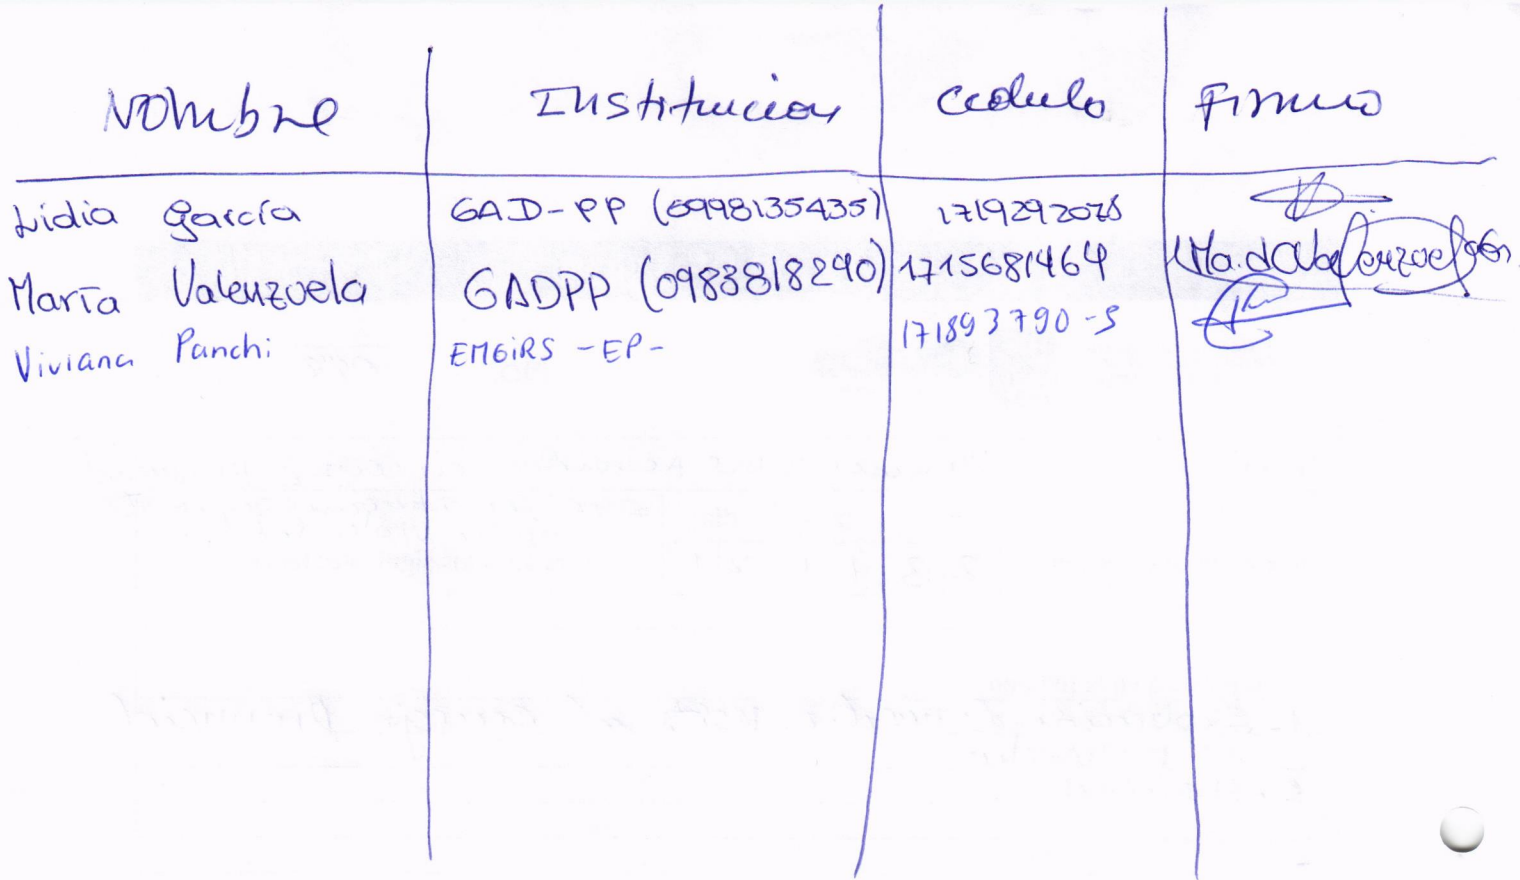 Nombre Institucion Cedula Firma
Lidia García GAD-PP (0998135435) 1719292078
María Valenzuela GADPP (0983818290) 1715681464
Viviana Panchi EMGiRS -EP- 171893790-5